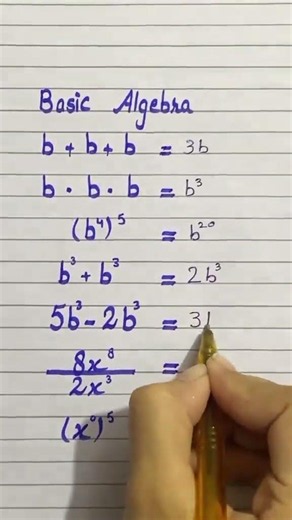 Basic Algebra
b + b + b = 3b
b · b · b = b³
(b⁴)⁵ = b²⁰
b³ + b³ = 2b³
5b³ - 2b³ = 3
8x⁸/2x³ =
(x⁰)⁵